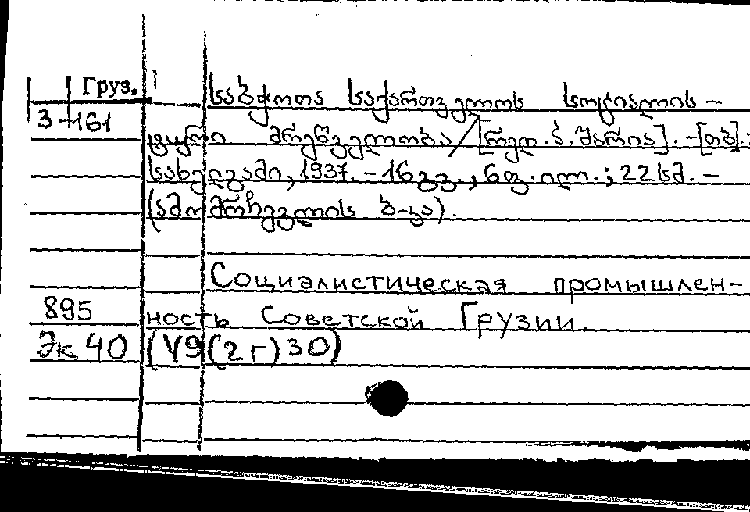 Груз.
საბჭოთა საქართველოს სოციალის-
3-161
ტური მრეწველობა/[რედ. ა. შარია]. -[თბ]:
სახელგამი, 1937. - 16 გვ., 6 ფ. ილ.; 22 სმ. -
(ამომრჩევლის ბ-კა).
Социалистическая промышлен-
895 ность Советской Грузии.
Эк 40 (У9(2г)30)